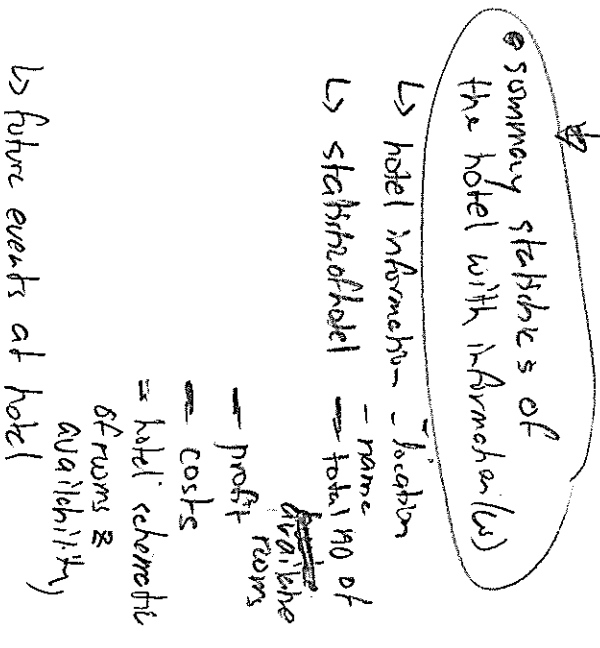 • summary statistics of
the hotel with information/(w)
↳ hotel information - location
- name
↳ statistic of hotel - total no of
available
rooms
- profit
- costs
- hotel schematic
of rooms &
availability,
↳ future events at hotel